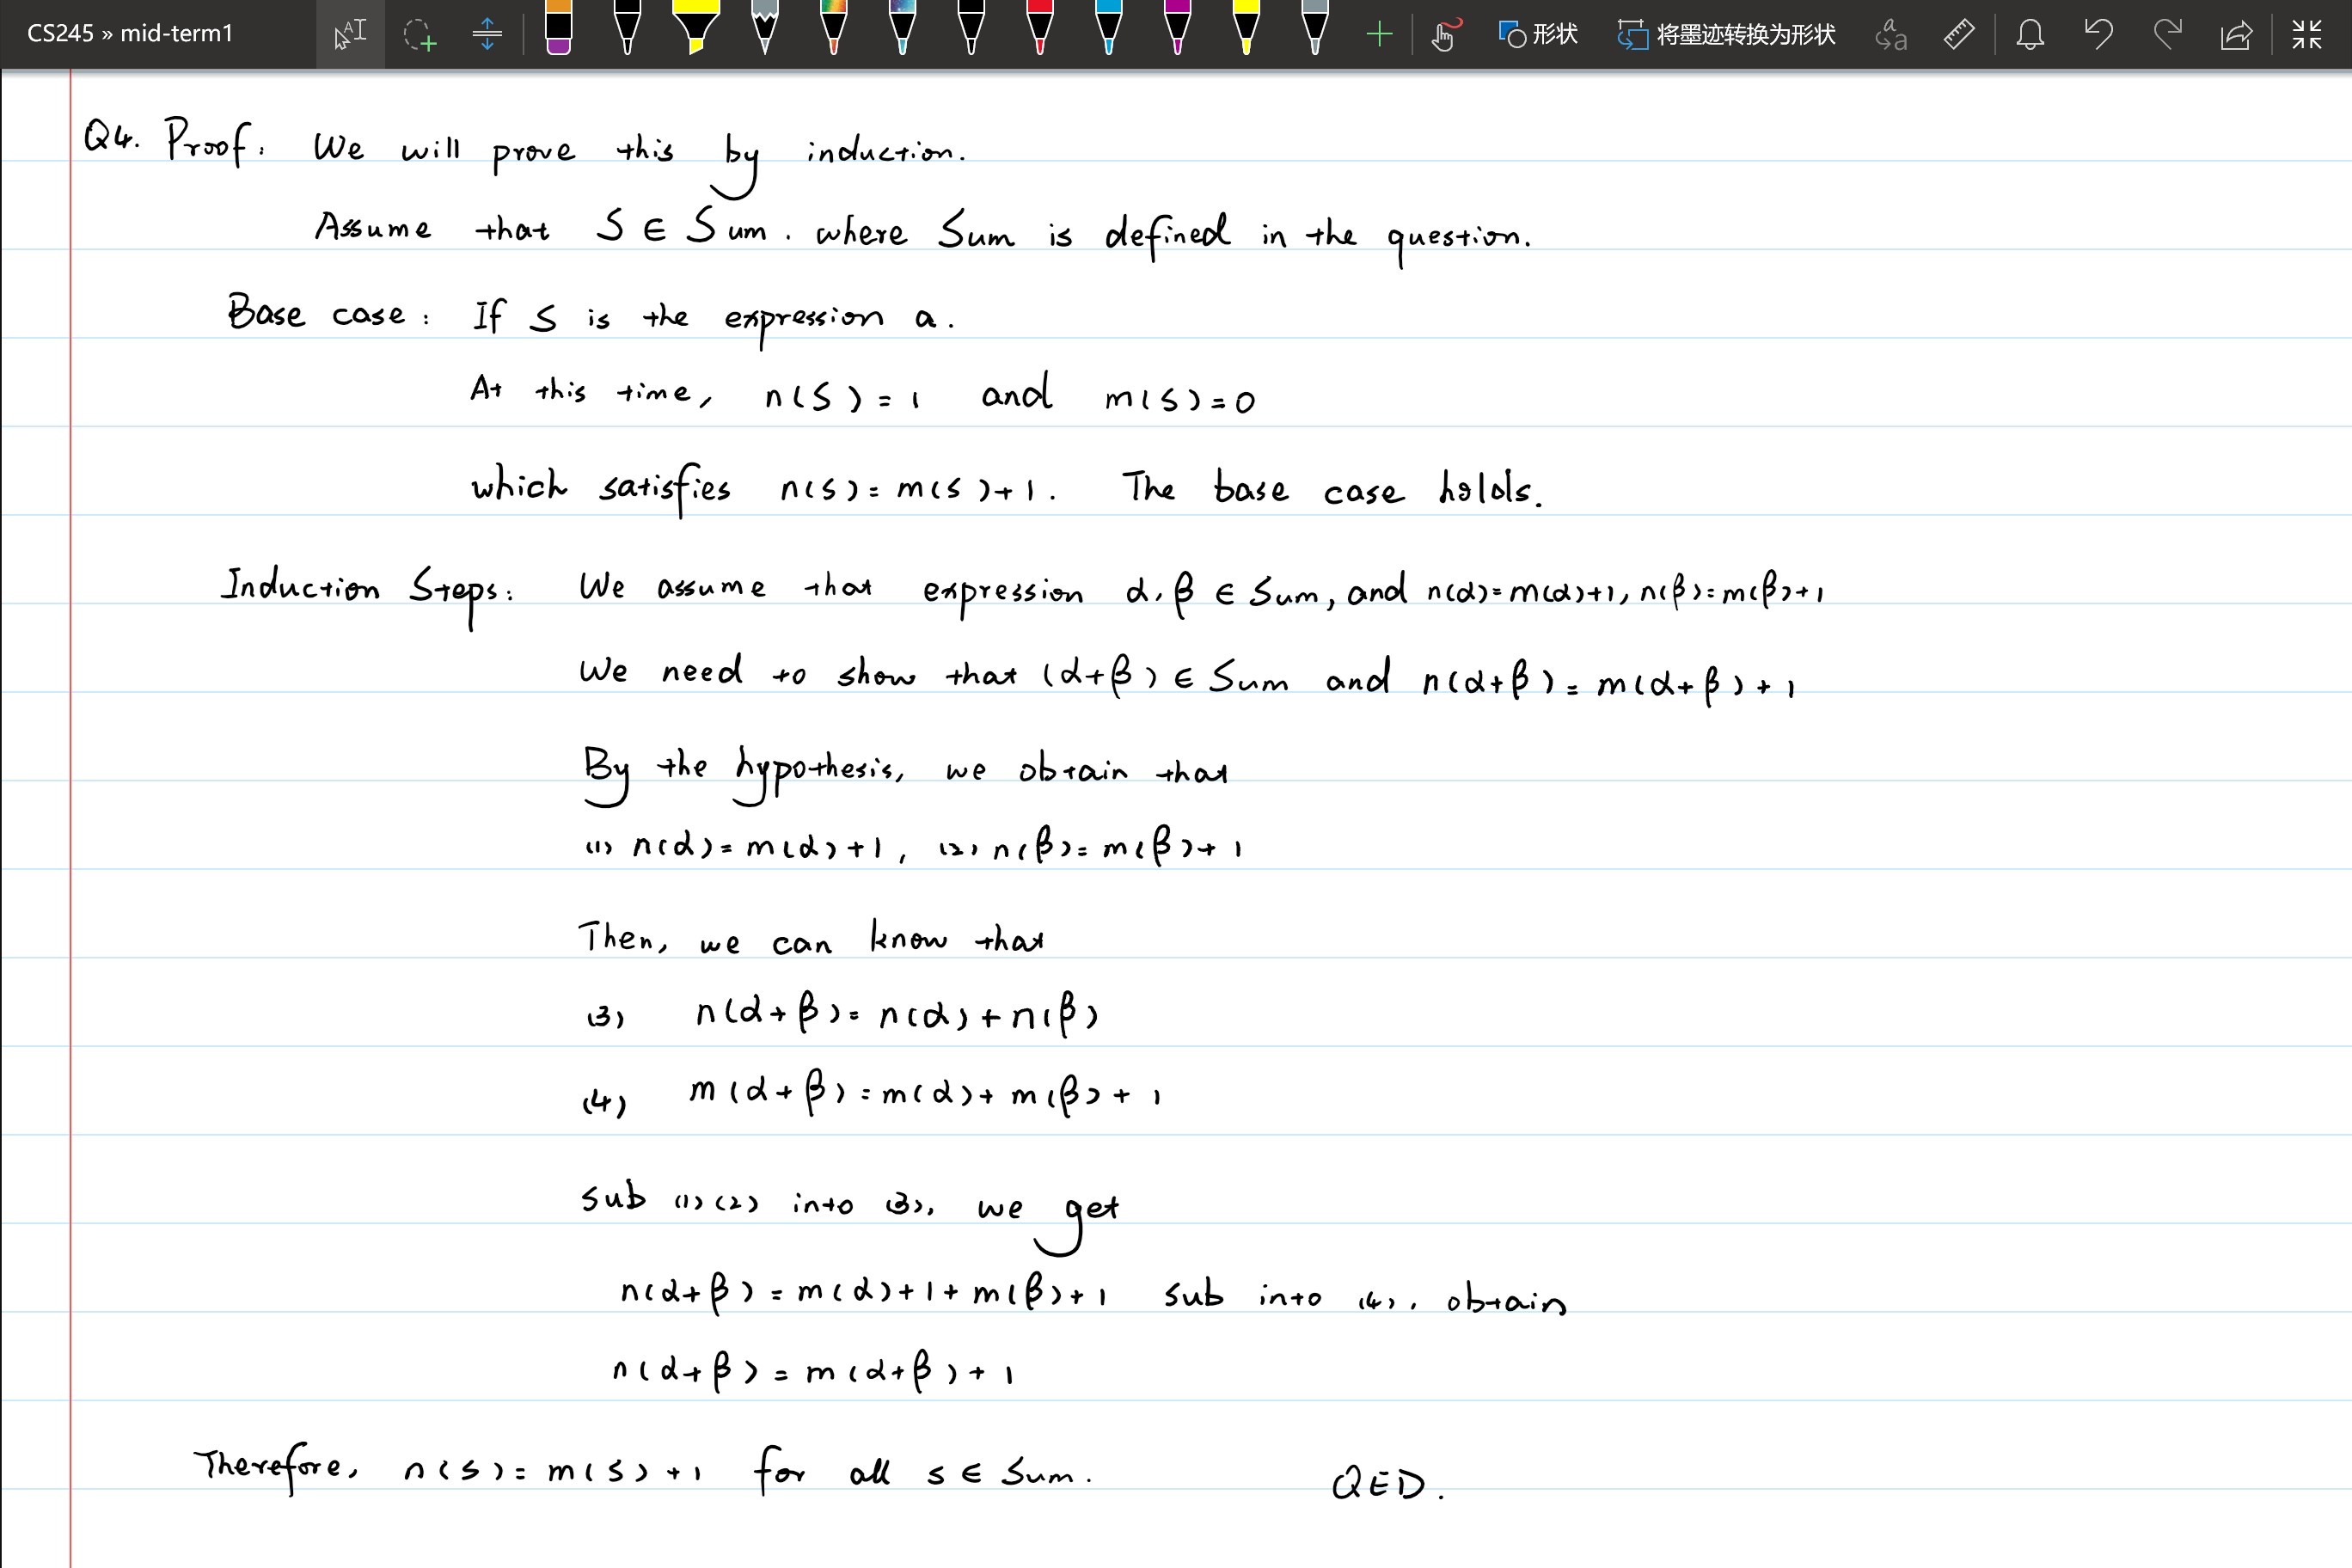 CS245 » mid-term1
形状 将墨迹转换为形状
Q4. Proof. We will prove this by induction.
Assume that S ∈ Sum. where Sum is defined in the question.
Base case: If S is the expression a.
At this time, n(S) = 1 and m(s) = 0
which satisfies n(s) = m(s) + 1. The base case holds.
Induction Steps: We assume that expression α, β ∈ Sum, and n(α) = m(α) + 1, n(β) = m(β) + 1
We need to show that (α+β) ∈ Sum and n(α+β) = m(α+β) + 1
By the hypothesis, we obtain that
(1) n(α) = m(α) + 1, (2) n(β) = m(β) + 1
Then, we can know that
(3) n(α+β) = n(α) + n(β)
(4) m(α+β) = m(α) + m(β) + 1
sub (1) (2) into (3), we get
n(α+β) = m(α) + 1 + m(β) + 1 sub into (4), obtain
n(α+β) = m(α+β) + 1
Therefore, n(s) = m(s) + 1 for all s ∈ Sum. QED.